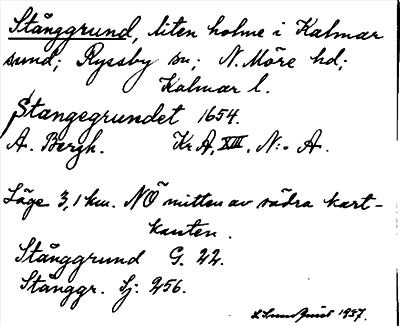 Stånggrund, liten holme i Kalmar
sund; Ryssby sn; N. Möre hd;
Kalmar l.
Stangegrundet 1654.
A. Bergh. Kr. A, XIII, N:o A.
Läge 3,1 km. NÖ mitten av södra kart-
kanten.
Stånggrund G. 22.
Stånggr. Sj: 256.
1937.